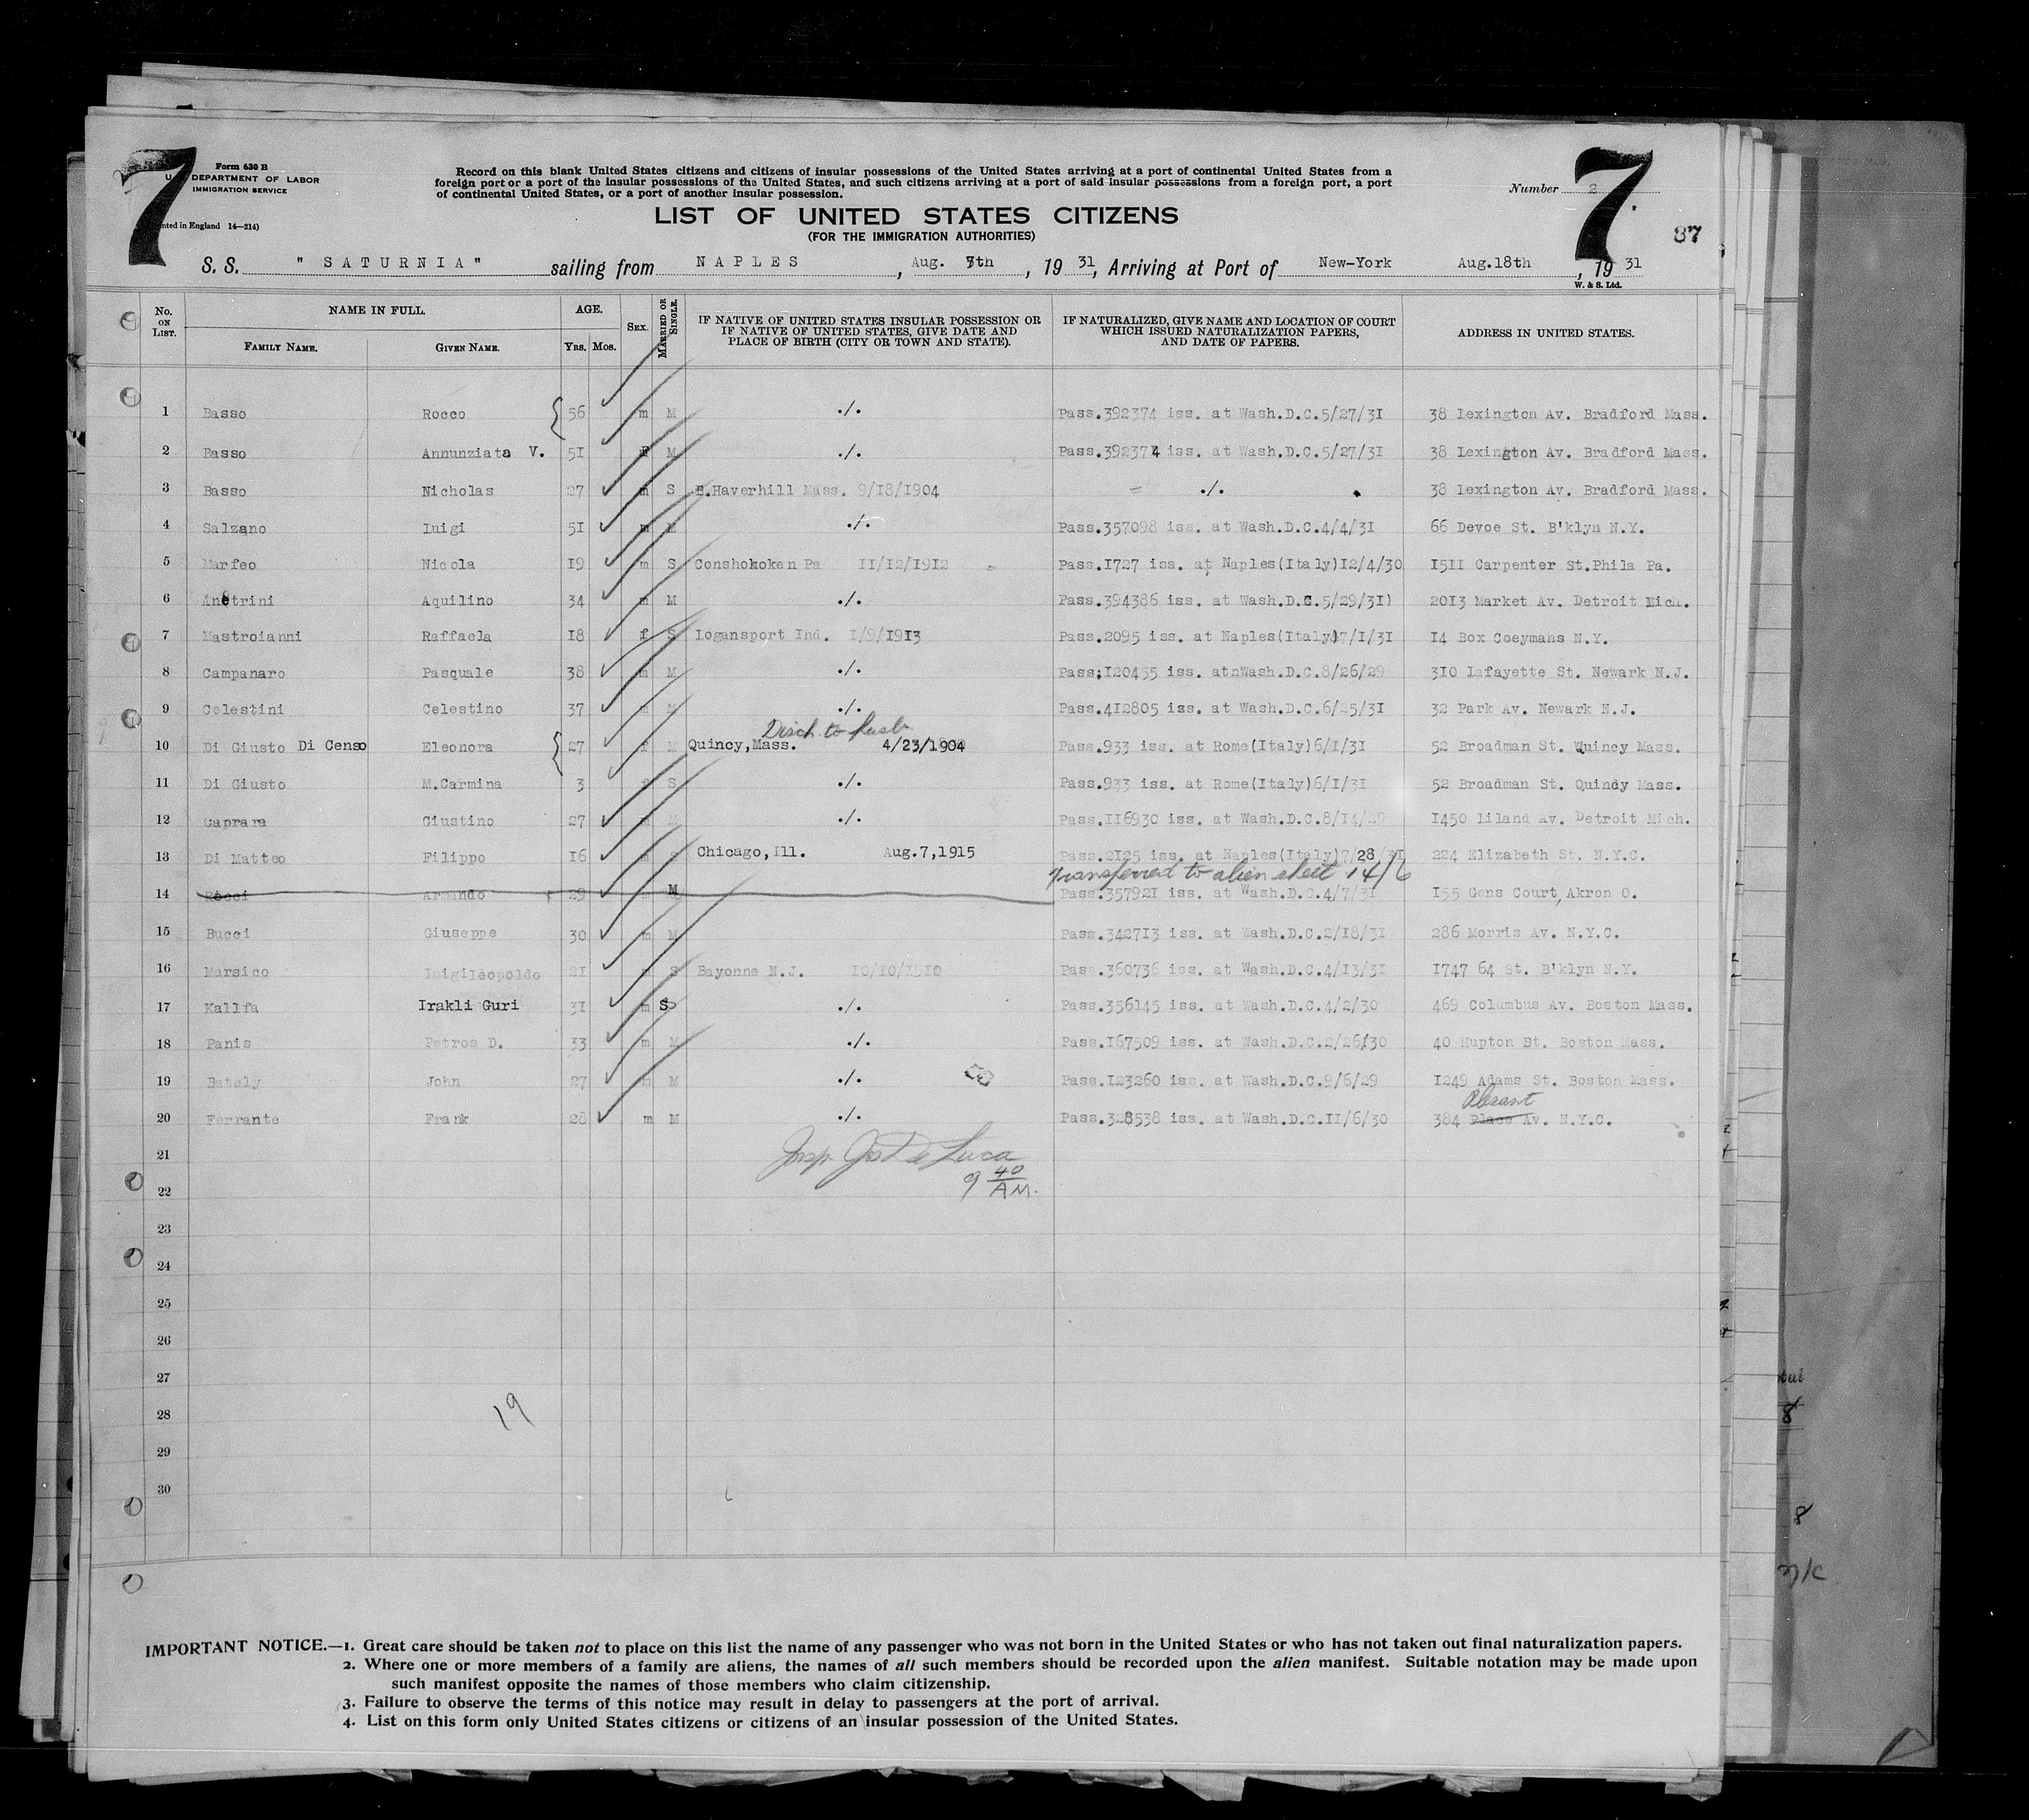 7
Form 630 B
U. S. DEPARTMENT OF LABOR
IMMIGRATION SERVICE
nted in England 14—214)
Record on this blank United States citizens and citizens of insular possessions of the United States arriving at a port of continental United States from a
foreign port or a port of the insular possessions of the United States, and such citizens arriving at a port of said insular possessions from a foreign port, a port
of continental United States, or a port of another insular possession.
LIST OF UNITED STATES CITIZENS
(FOR THE IMMIGRATION AUTHORITIES)
Number 2
7
87
S. S. " SATURNIA " sailing from NAPLES, Aug. 7th, 19 31, Arriving at Port of New-York Aug.18th, 19 31
W. & S. Ltd.
No. ON LIST. NAME IN FULL. AGE. SEX. MARRIED OR SINGLE. IF NATIVE OF UNITED STATES INSULAR POSSESSION OR IF NATIVE OF UNITED STATES, GIVE DATE AND PLACE OF BIRTH (CITY OR TOWN AND STATE). IF NATURALIZED, GIVE NAME AND LOCATION OF COURT WHICH ISSUED NATURALIZATION PAPERS, AND DATE OF PAPERS. ADDRESS IN UNITED STATES.
FAMILY NAME. GIVEN NAME. YRS. MOS.
1 Basso Rocco 56 m M ./. Pass.392374 iss. at Wash.D.C.5/27/31 38 Lexington Av. Bradford Mass.
2 Basso Annunziata V. 51 F M ./. Pass.392374 iss. at Wash.D.C.5/27/31 38 Lexington Av. Bradford Mass.
3 Basso Nicholas 27 m S E.Haverhill Mass. 9/18/1904 ./. 38 Lexington Av. Bradford Mass.
4 Salzano Luigi 51 m M ./. Pass.357098 iss. at Wash.D.C.4/4/31 66 Devoe St. B'klyn N.Y.
5 Marfeo Nicola 19 m S Conshokoken Pa 11/12/1912 Pass.1727 iss. at Naples(Italy)12/4/30 1511 Carpenter St.Phila Pa.
6 Anetrini Aquilino 34 m M ./. Pass.394386 iss. at Wash.D.C.5/29/31) 2013 Market Av. Detroit Mich.
7 Mastroianni Raffaela 18 f S Logansport Ind. 1/9/1913 Pass.2095 iss. at Naples(Italy)7/1/31 14 Box Coeymans N.Y.
8 Campanaro Pasquale 38 m M ./. Pass;120455 iss. atnWash.D.C.8/26/29 310 Lafayette St. Newark N.J.
9 Celestini Celestino 37 m M ./. Pass.412805 iss. at Wash.D.C.6/25/31 32 Park Av. Newark N.J.
Disch to husb
10 Di Giusto Di Censo Eleonora 27 f M Quincy,Mass. 4/23/1904 Pass.933 iss. at Rome(Italy)6/1/31 52 Broadman St. Quincy Mass.
11 Di Giusto M.Carmina 3 f S ./. Pass.933 iss. at Rome(Italy)6/1/31 52 Broadman St. Quindy Mass.
12 Caprara Giustino 27 m M ./. Pass.116930 iss. at Wash.D.C.8/14/29 1450 Liland Av. Detroit Mich.
13 Di Matteo Filippo 16 m S Chicago,Ill. Aug.7,1915 Pass.2125 iss. at Naples(Italy)7/28/31 224 Elizabeth St. N.Y.C.
Transferred to alien sheet 14/6
14 Rocci Armando 29 m M Pass.357921 iss. at Wash.D.C.4/7/31 155 Gens Court, Akron O.
15 Bucci Giuseppe 30 m M Pass.342713 iss. at Wash.D.C.2/18/31 286 Morris Av. N.Y.C.
16 Marsico Luigileopoldo 21 m S Bayonne N.J. 10/10/1910 Pass.360736 iss. at Wash.D.C.4/13/31 1747 64 St. B'klyn N.Y.
17 Kallfa Irakli Guri 31 m S ./. Pass.356145 iss. at Wash.D.C.4/2/30 469 Columbus Av. Boston Mass.
18 Panis Petros D. 33 m M ./. Pass.167509 iss. at Wash.D.C.2/26/30 40 Hupton St. Boston Mass.
19 Bately John 27 m M ./. Pass.123260 iss. at Wash.D.C.9/6/29 1249 Adams St. Boston Mass.
Plesant
20 Ferrante Frank 28 m M ./. Pass.328538 iss. at Wash.D.C.11/6/30 384 Place Av. N.Y.C.
21 Insp. Jos de Luca
22 9 40 AM.
23
24
25
26
27
28 19
29
30
IMPORTANT NOTICE.—1. Great care should be taken not to place on this list the name of any passenger who was not born in the United States or who has not taken out final naturalization papers.
2. Where one or more members of a family are aliens, the names of all such members should be recorded upon the alien manifest. Suitable notation may be made upon
such manifest opposite the names of those members who claim citizenship.
3. Failure to observe the terms of this notice may result in delay to passengers at the port of arrival.
4. List on this form only United States citizens or citizens of an insular possession of the United States.